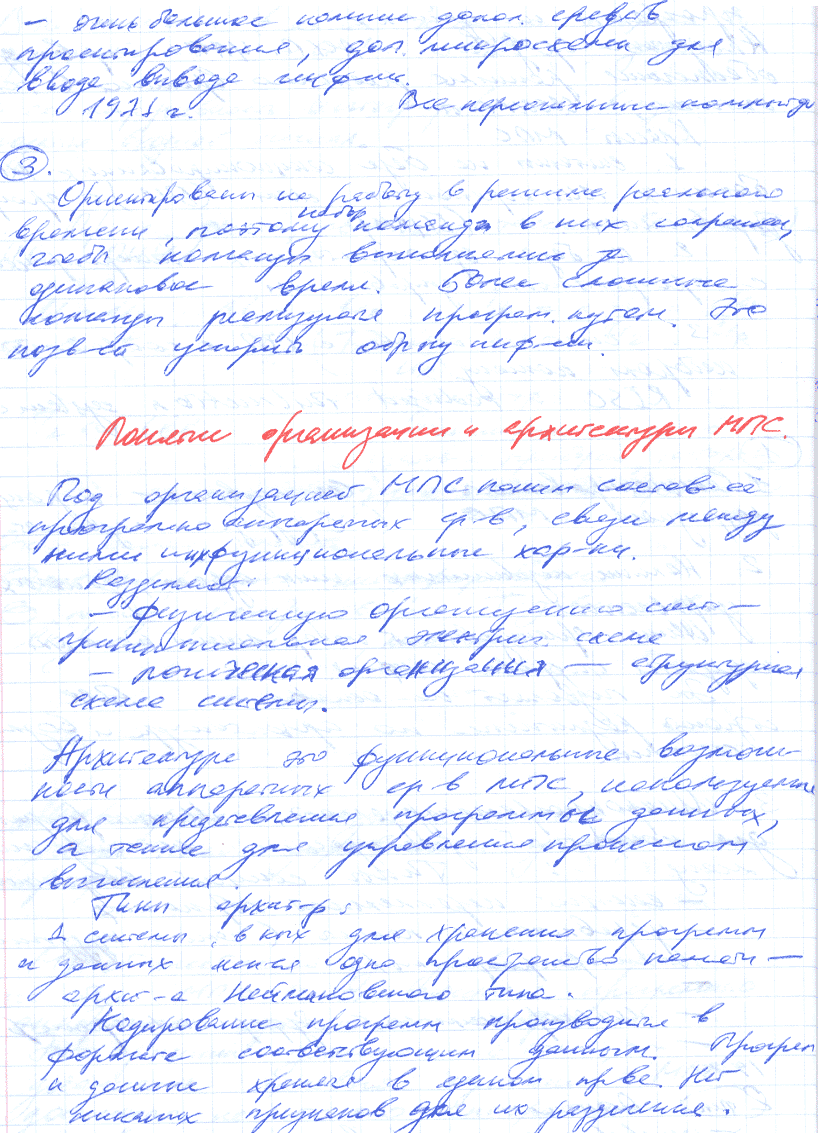 – очень большое колич. допол. средств
проектирования, доп. микросхемы для
ввода вывода инфии.
1971 г. Все персональные компьютеры
3.
Ориентированы на работу в режиме реального
времени, поэтому набор команд в них сокращен,
чтобы команды выполнялись за
одинаковое время. Более сложные
команды реализуются програм. путем. Это
позв-ет ускорить обр-ку инф-ии.
Понятие организации и архитектуры МПС.
Под организацией МПС поним состав её
програмно аппаратных ср-в, связи между
ними и их функциональные хар-ки.
Разделяют
– физическую организацию сист –
принципиальная электрич. схема
– логическая организация — структурная
схема системы.
Архитектура это функциональные возмож-
ности аппаратных ср-в МПС, используемые
для представления программ и данных,
а также для управления процессом
вычисления.
Типы архит-р:
1 системы, в к-ых для хранения программ
и данных исп-ся одно пространство памяти —
архит-а Неймановского типа.
Кодирование программ производится в
формате соответствующим данным. Програм
и данные хранятся в едином пр-ве. Нет
никаких признаков для их разделения.